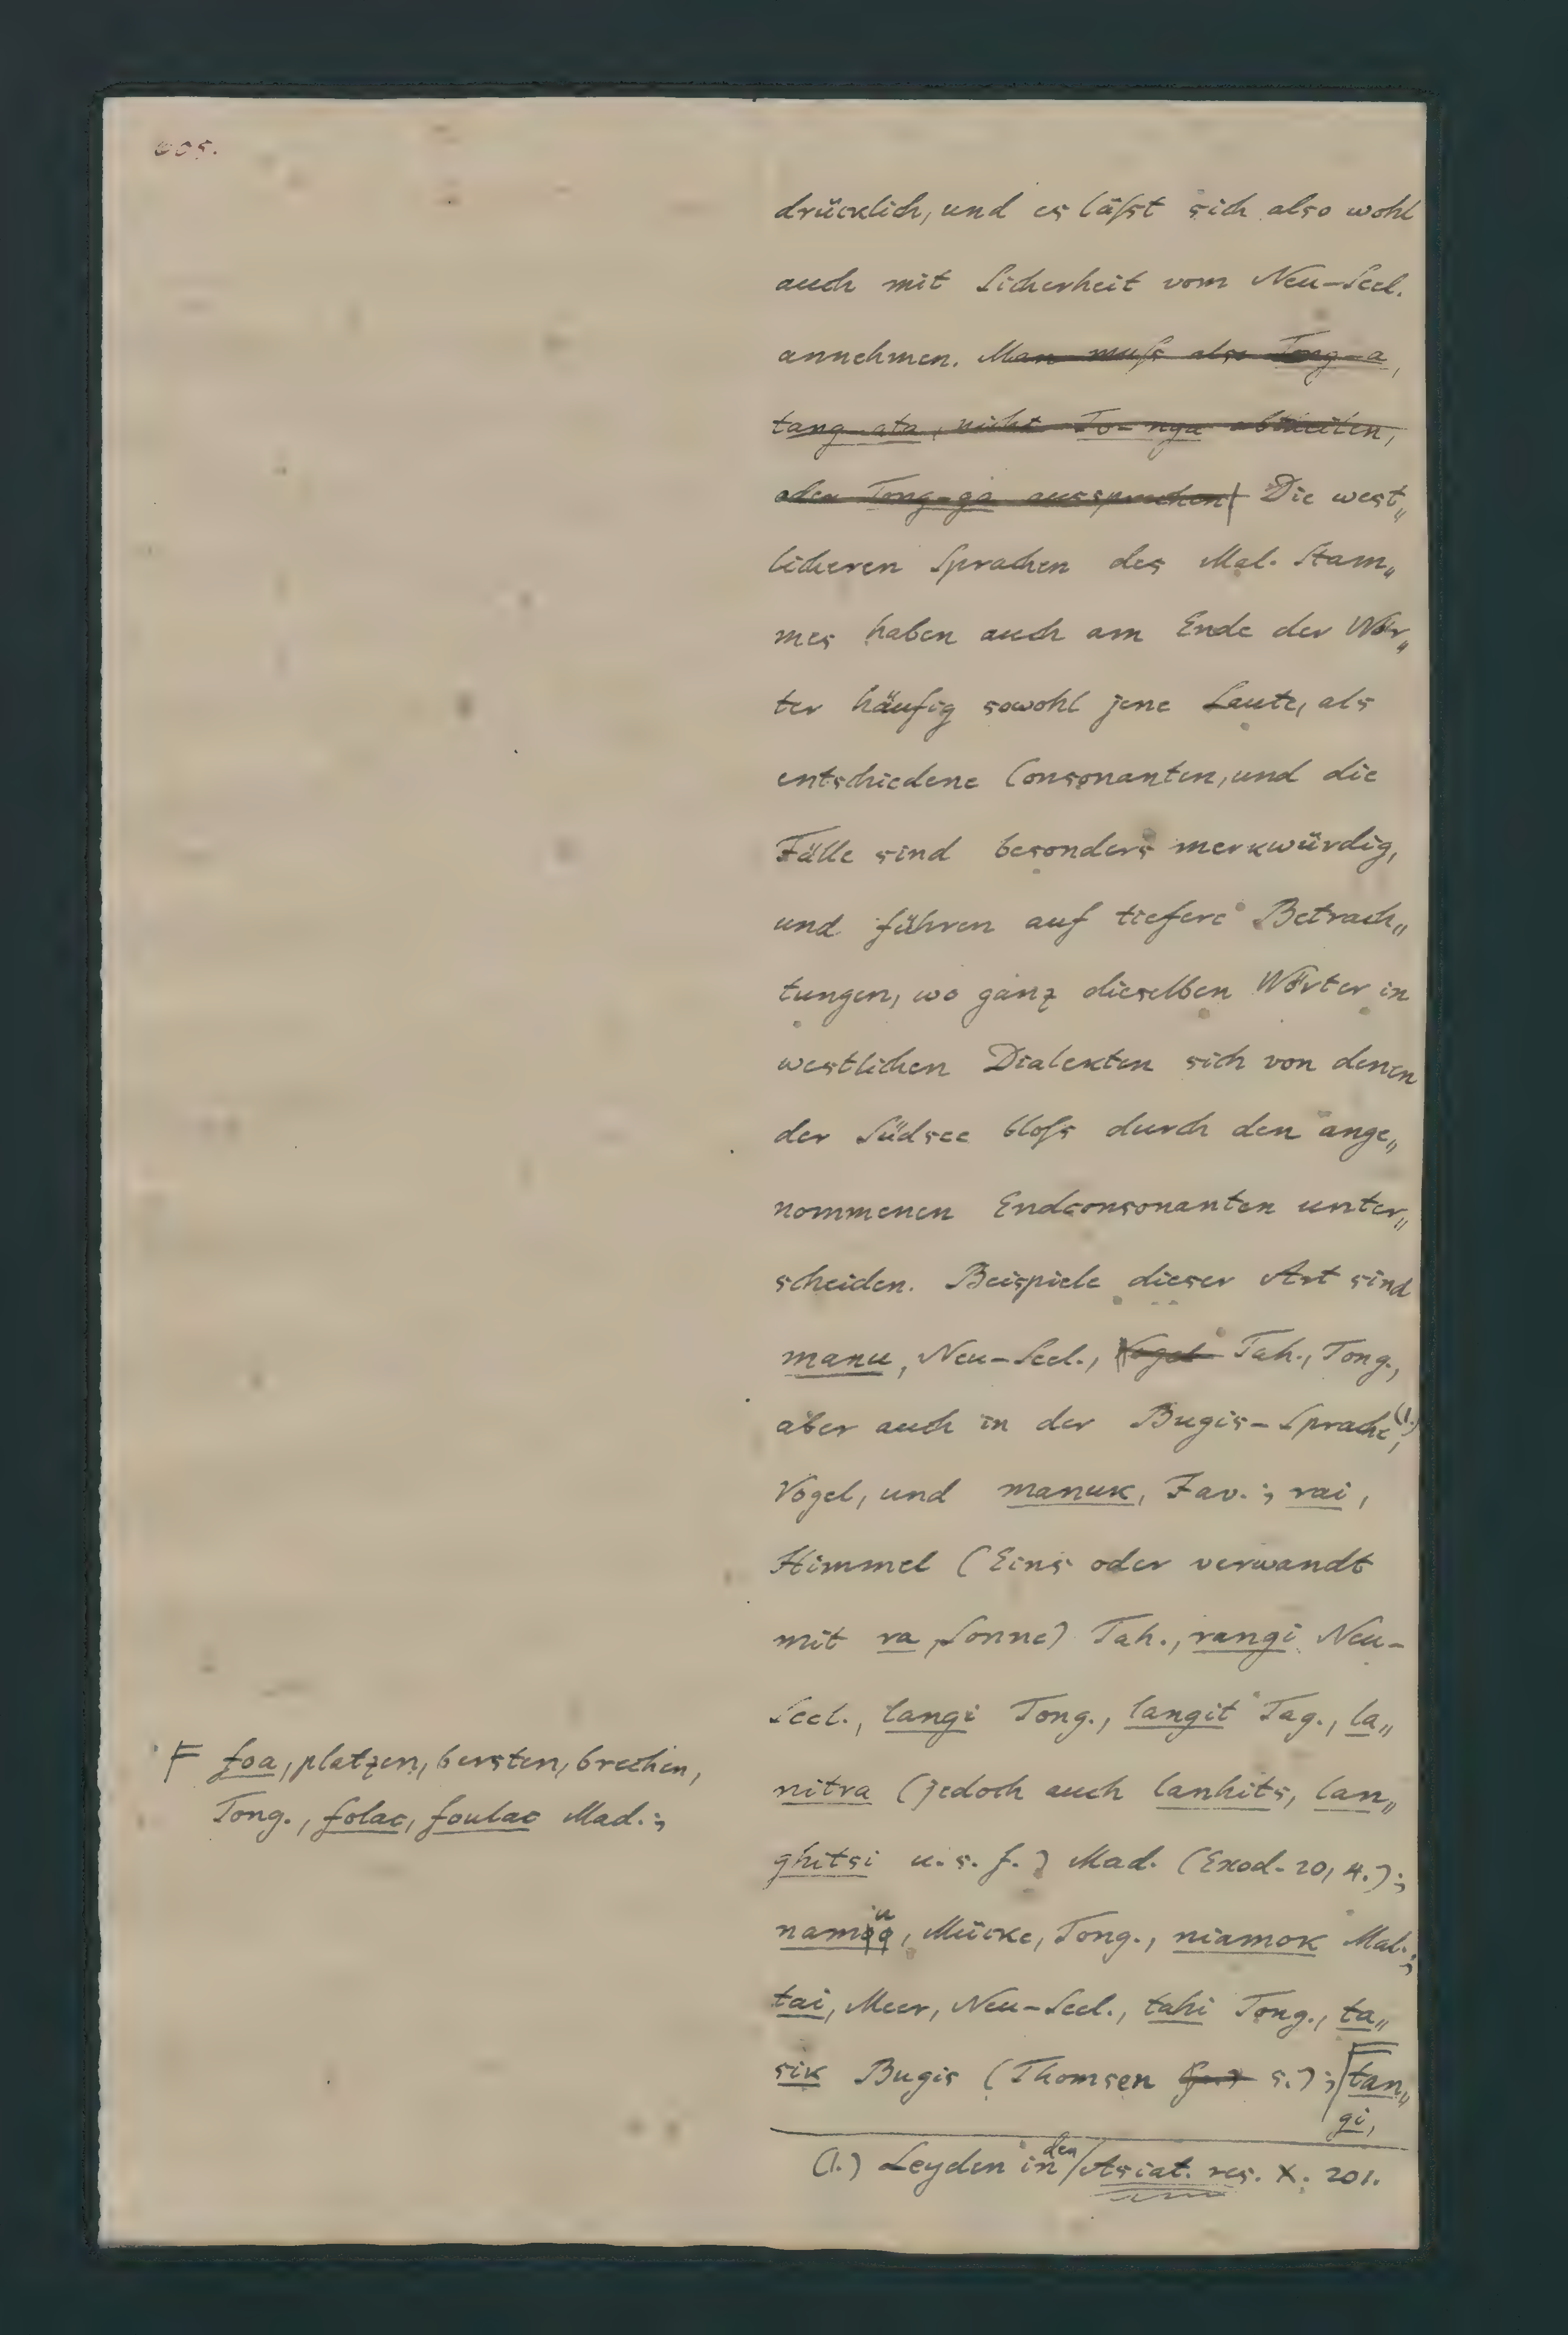 605.
drücklich, und es läſst sich also wohl
auch mit Sicherheit vom Neu-Seel.
annehmen. Man muſs also Tong-a,
tang-ata, nicht To-nga abtheilen,
oder Tong-ga aussprechen. Die west„
licheren Sprachen des Mal. Stam„
mes haben auch am Ende der Wör„
ter häufig sowohl jene Laute, als
entschiedene Consonanten, und die
Fälle sind besonders merkwürdig,
und führen auf tiefere Betrach„
tungen, wo ganz dieselben Wörter in
westlichen Dialekten sich von denen
der Südsee bloſs durch den ange„
nommenen Endconsonanten unter„
scheiden. Beispiele dieser Art sind
manu, Neu-Seel., Vogel Tah., Tong.,
aber auch in der Bugis-Sprache(1.),
Vogel, und manuk, Jav.; rai,
Himmel (Eins oder verwandt
mit ra, Sonne) Tah., rangi Neu-
Seel., langi Tong., langit Tag., la„
nitra (jedoch auch lanhits, lan„
ghitsi u. s. f.) Mad. (Exod. 20, 4.);
namu, Mücke, Tong., niamok Mal.;
tai, Meer, Neu-Seel., tahi Tong., ta„
sik Bugis (Thomsen s.); F tan„
gi,
F foa, platzen, bersten, brechen,
Tong., folac, foulac Mad.;
(1.) Leyden in den Asiat. res. X. 201.